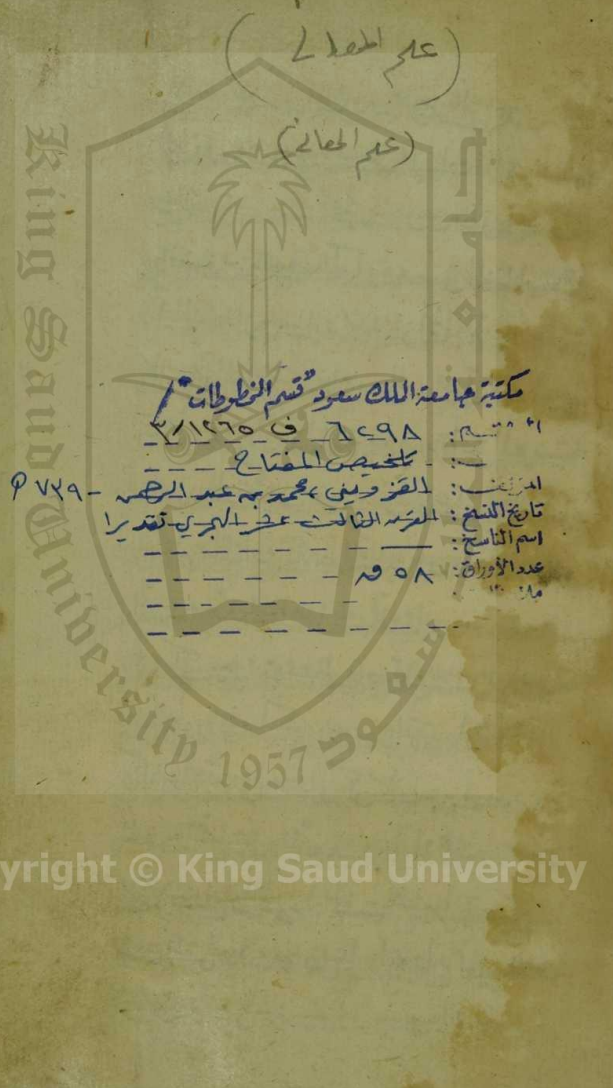 (علم المعاني)
(علم المعاني)
مكتبة جامعة الملك سعود "قسم المخطوطات"
الرقم: ٦٢٩٨ ف ١٢٦٥/٣
تلخيص المفتاح
المؤلف: القزويني، محمد بن عبد الرحمن - ٧٣٩ هـ
تاريخ النسخ: القرن الثالث عشر الهجري تقديرا
اسم الناسخ:
عدد الأوراق: ٥٨ ق
King Saud University
1957
جامعة الملك سعود
yright © King Saud University